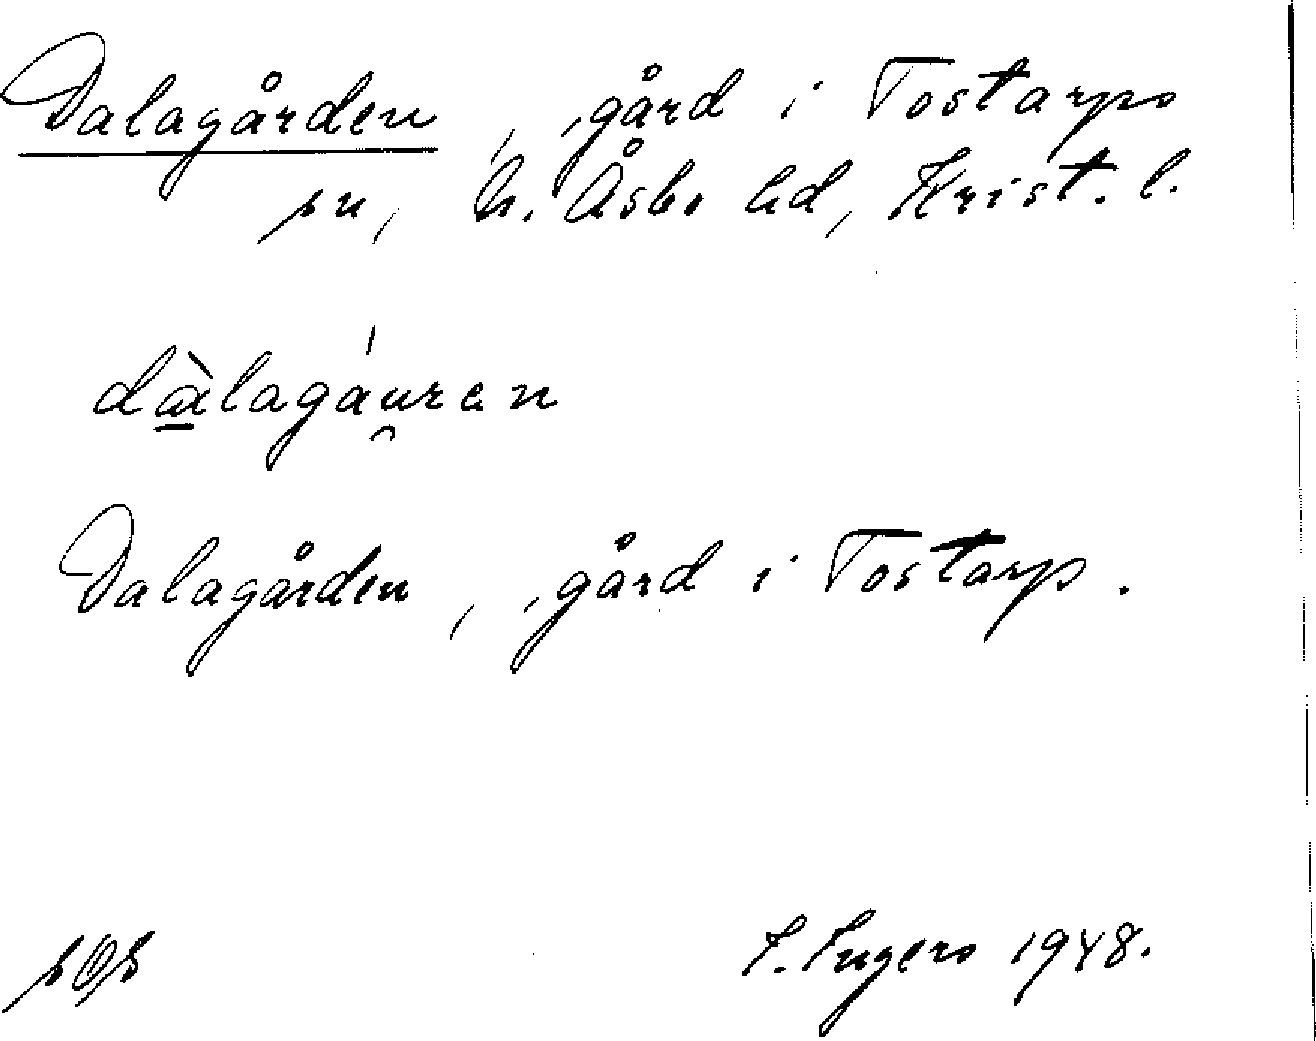 Dalagården, gård i Tostarps
sn, N. Åsbo hd, Krist. l.
dàlagáu̯ren
Dalagården, gård i Tostarp.
I. Ingers 1948.